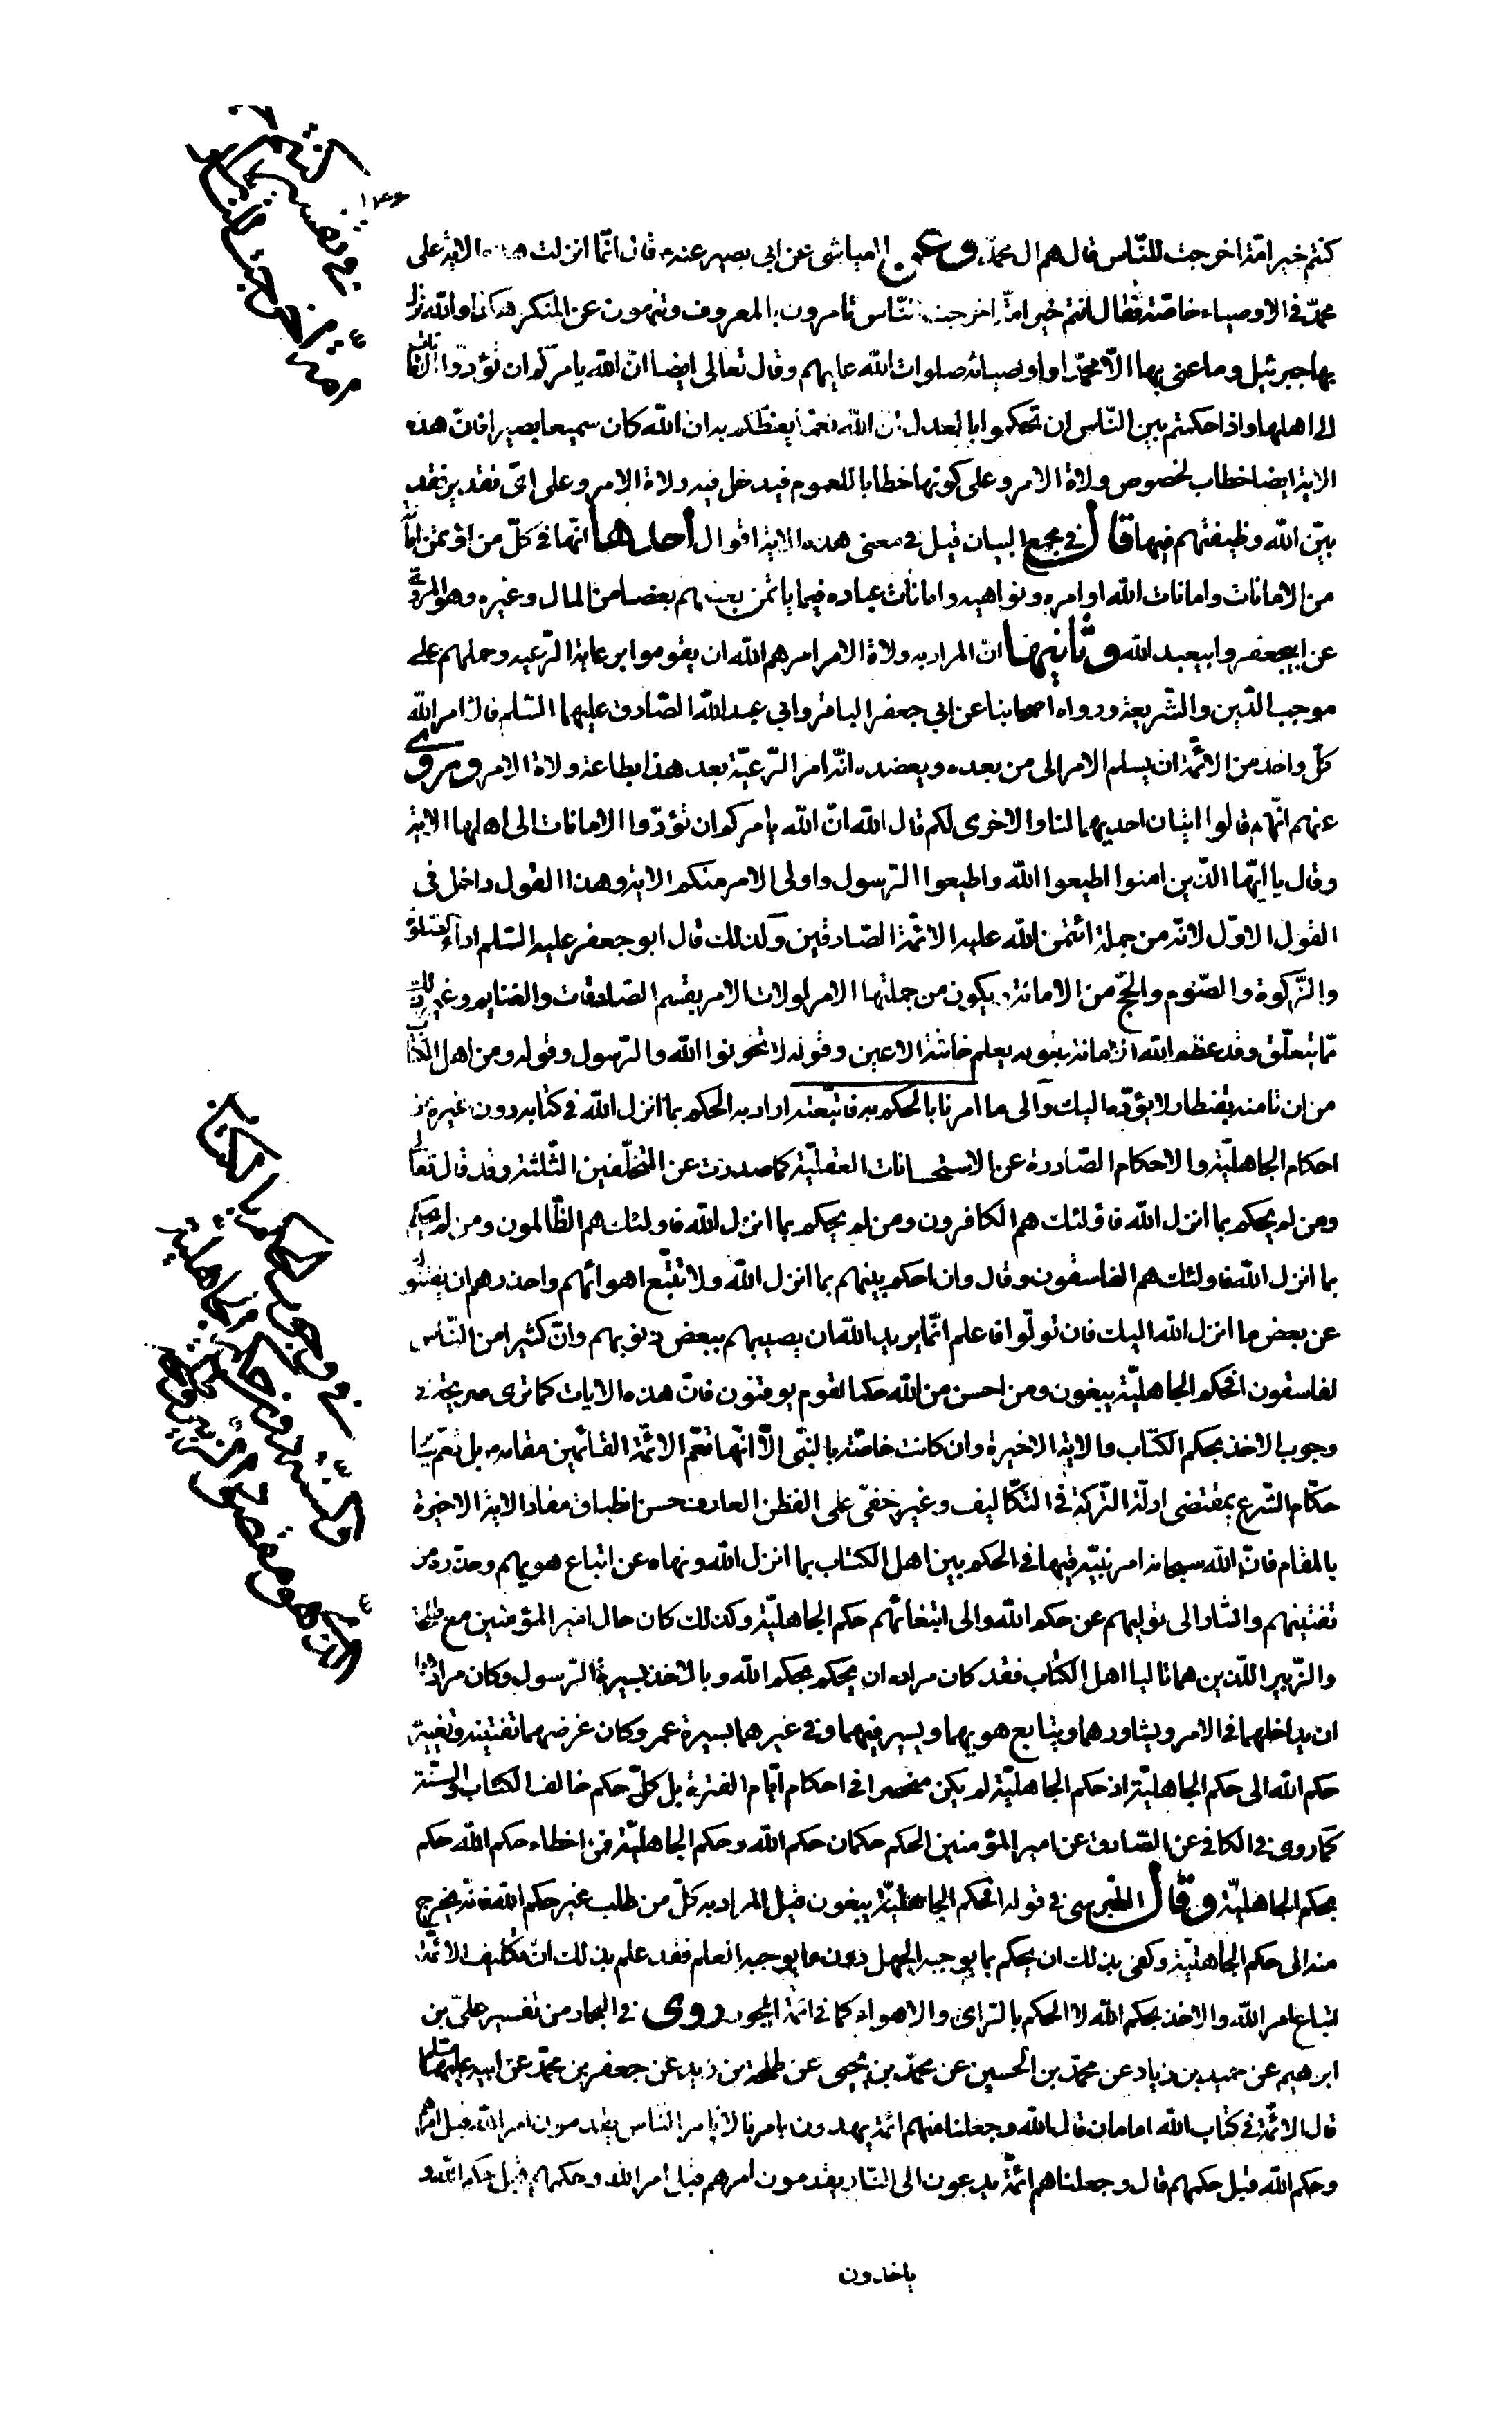 كنتم خير امّة اخرجت للنّاس قال هم ال محمّد، وعن العياشى عن ابى بصير عنه قال انّما انزلت هذه الاية على
محمّد فى الاوصياء خاصّة فقال انتم خير امّة اخرجت للنّاس تامرون بالمعروف وتنهون عن المنكر هكذا والله نزل
بها جبرئيل وما عنى بها الّا محمّدا واوصيائه صلوات الله عليهم وقال تعالى ايضا انّ الله يامركم ان تؤدّوا الامانات
الى اهلها واذا حكمتم بين النّاس ان تحكموا بالعدل ان الله نعمّا يعظكم به ان الله كان سميعا بصيرا فانّ هذه
الاية ايضا خطاب لخصوص ولاة الامر وعلى كونها خطابا للعموم فيدخل فيه ولاة الامر وعلى اىّ تقدير فقد
بيّن الله وظيفتهم فيها قال فى مجمع البيان قيل فى معنى هذه الاية اقوال احدها انّها فى كلّ من اؤتمن امانة
من الامانات وامانات الله اوامره ونواهيه وامانات عباده فيما ياتمن بعضهم بعضا من المال وغيره وهو المروىّ
عن ابيجعفر وابيعبد الله وثانيها انّ المراد به ولاة الامر امرهم الله ان يقوموا برعاية الرّعيه وحملهم على
موجب الدّين والشّريعة ورواه اصحابنا عن ابى جعفر الباقر وابى عبد الله الصّادق عليهما السّلم قال امر الله
كلّ واحد من الائمّة ان يسلم الامر الى من بعده ويعضده انّه امر الرّعيّة بعد هذا بطاعة ولاة الامر وروى
عنهم انّهم قالوا ايتان احديهما لنا والاخرى لكم قال الله انّ الله يامركم ان تؤدّوا الامانات الى اهلها الاية
وقال يا ايّها الذّين امنوا اطيعوا الله واطيعوا الرّسول واولى الامر منكم الاية وهذا القول داخل فى
القول الاوّل لانّه من جملة ائتمن الله عليه الائمّة الصّادقين وكذلك قال ابو جعفر عليه السّلم اداء الصّلوة
والزّكوة والصّوم والحجّ من الامانة ويكون من جملتها الامر لولات الامر بقسم الصّدقات والغنايم وغير ذلك
ممّا يتعلّق وقد عظم الله الامانة بقوله يعلم خائنة الاعين وقوله لا تخونوا الله والرّسول وقوله ومن اهل الكتاب
من ان تامنه بقنطار لا يؤدّه اليك والى ما امرنا بالحكم به فاتبّعته اراد به الحكم بما انزل الله فى كتابه دون غيره من
احكام الجاهليّة والاحكام الصّادرة عن الاستحسانات العقليّة كما صدرت عن المتخلّفين الثّلثة وقد قال تعالى
ومن لم يحكم بما انزل الله فاولئك هم الكافرون ومن لم يحكم بما انزل الله فاولئك هم الظّالمون ومن لم يحكم
بما انزل الله فاولئك هم الفاسقون وقال وان احكم بينهم بما انزل الله ولا تتبّع اهوائهم واحذرهم ان يفتنوك
عن بعض ما انزل الله اليك فان تولّوا فاعلم انّما يريد الله ان يصيبهم ببعض ذنوبهم وانّ كثيرا من النّاس
لفاسقون افحكم الجاهليّة يبغون ومن احسن من الله حكما لقوم يوقنون فانّ هذه الايات كما ترى صريحة فى
وجوب الاخذ بحكم الكتاب والاية الاخيرة وان كانت خاصّة بالنبّى الّا انّها تعمّ الائمّة القائمين مقامه بل تعمّ سائر
حكّام الشّرع بمقتضى ادلّة الشّركة فى التّكاليف وغير خفىّ على الفطن العارف حسن انطباق مفاد الاية الاخيرة
بالمقام فانّ الله سبحانه امر نبيّه فيها فى الحكم بين اهل الكتاب بما انزل الله ونهاه عن اتباع هويهم وحذّره من
تفتينهم واشار الى توليهم عن حكم الله والى ابتغائهم حكم الجاهليّة وكذلك كان حال امير المؤمنين مع طلحة
والزّبير اللّذين هما تاليا اهل الكتاب فقد كان مراده ان يحكم بحكم الله وبالاخذ بسيرة الرّسول وكان مرادهما
ان يداخلهما فى الامر ويشاورهما ويتابع هويهما ويسير فيهما وفى غيرهما بسيرة عمر وكان غرضهما تفتينه وتغيير
حكم الله الى حكم الجاهليّة اذ حكم الجاهليّة لم يكن منحصرا فى احكام ايّام الفترة بل كلّ حكم خالف الكتاب والسّنّة
كما روى فى الكافى عن الصّادق عن امير المؤمنين الحكم حكمان حكم الله وحكم الجاهليّة فمن اخطاء حكم الله حكم
بحكم الجاهليّة وقال الطّبرسى فى قوله افحكم الجاهليّة يبغون قيل المراد به كلّ من طلب غير حكم الله فانّه يخرج
منه الى حكم الجاهليّة وكفى بذلك ان يحكم بما يوجبه الجهل دون ما يوجبه العلم فقد علم بذلك انّ تكليف الائمّة
اتباع امر الله والاخذ بحكم الله لا الحكم بالرّاى والاهواء كما فى ائمّة الجور روى فى البحار من تفسير علىّ بن
ابرهيم عن حميد بن زياد عن محمّد بن الحسين عن محمّد بن يحيى عن طلحة بن زيد عن جعفر بن محمّد عن ابيه عليهما السّلم
قال الائمّة فى كتاب الله امامان قال الله وجعلنا منهم ائمّة يهدون بامرنا لا بامر النّاس يقدمون امر الله قبل امرهم
وحكم الله قبل حكمهم قال وجعلناهم ائمّة يدعون الى النّار يقدمون امرهم قبل امر الله وحكمهم قبل حكم الله و
ياخذون